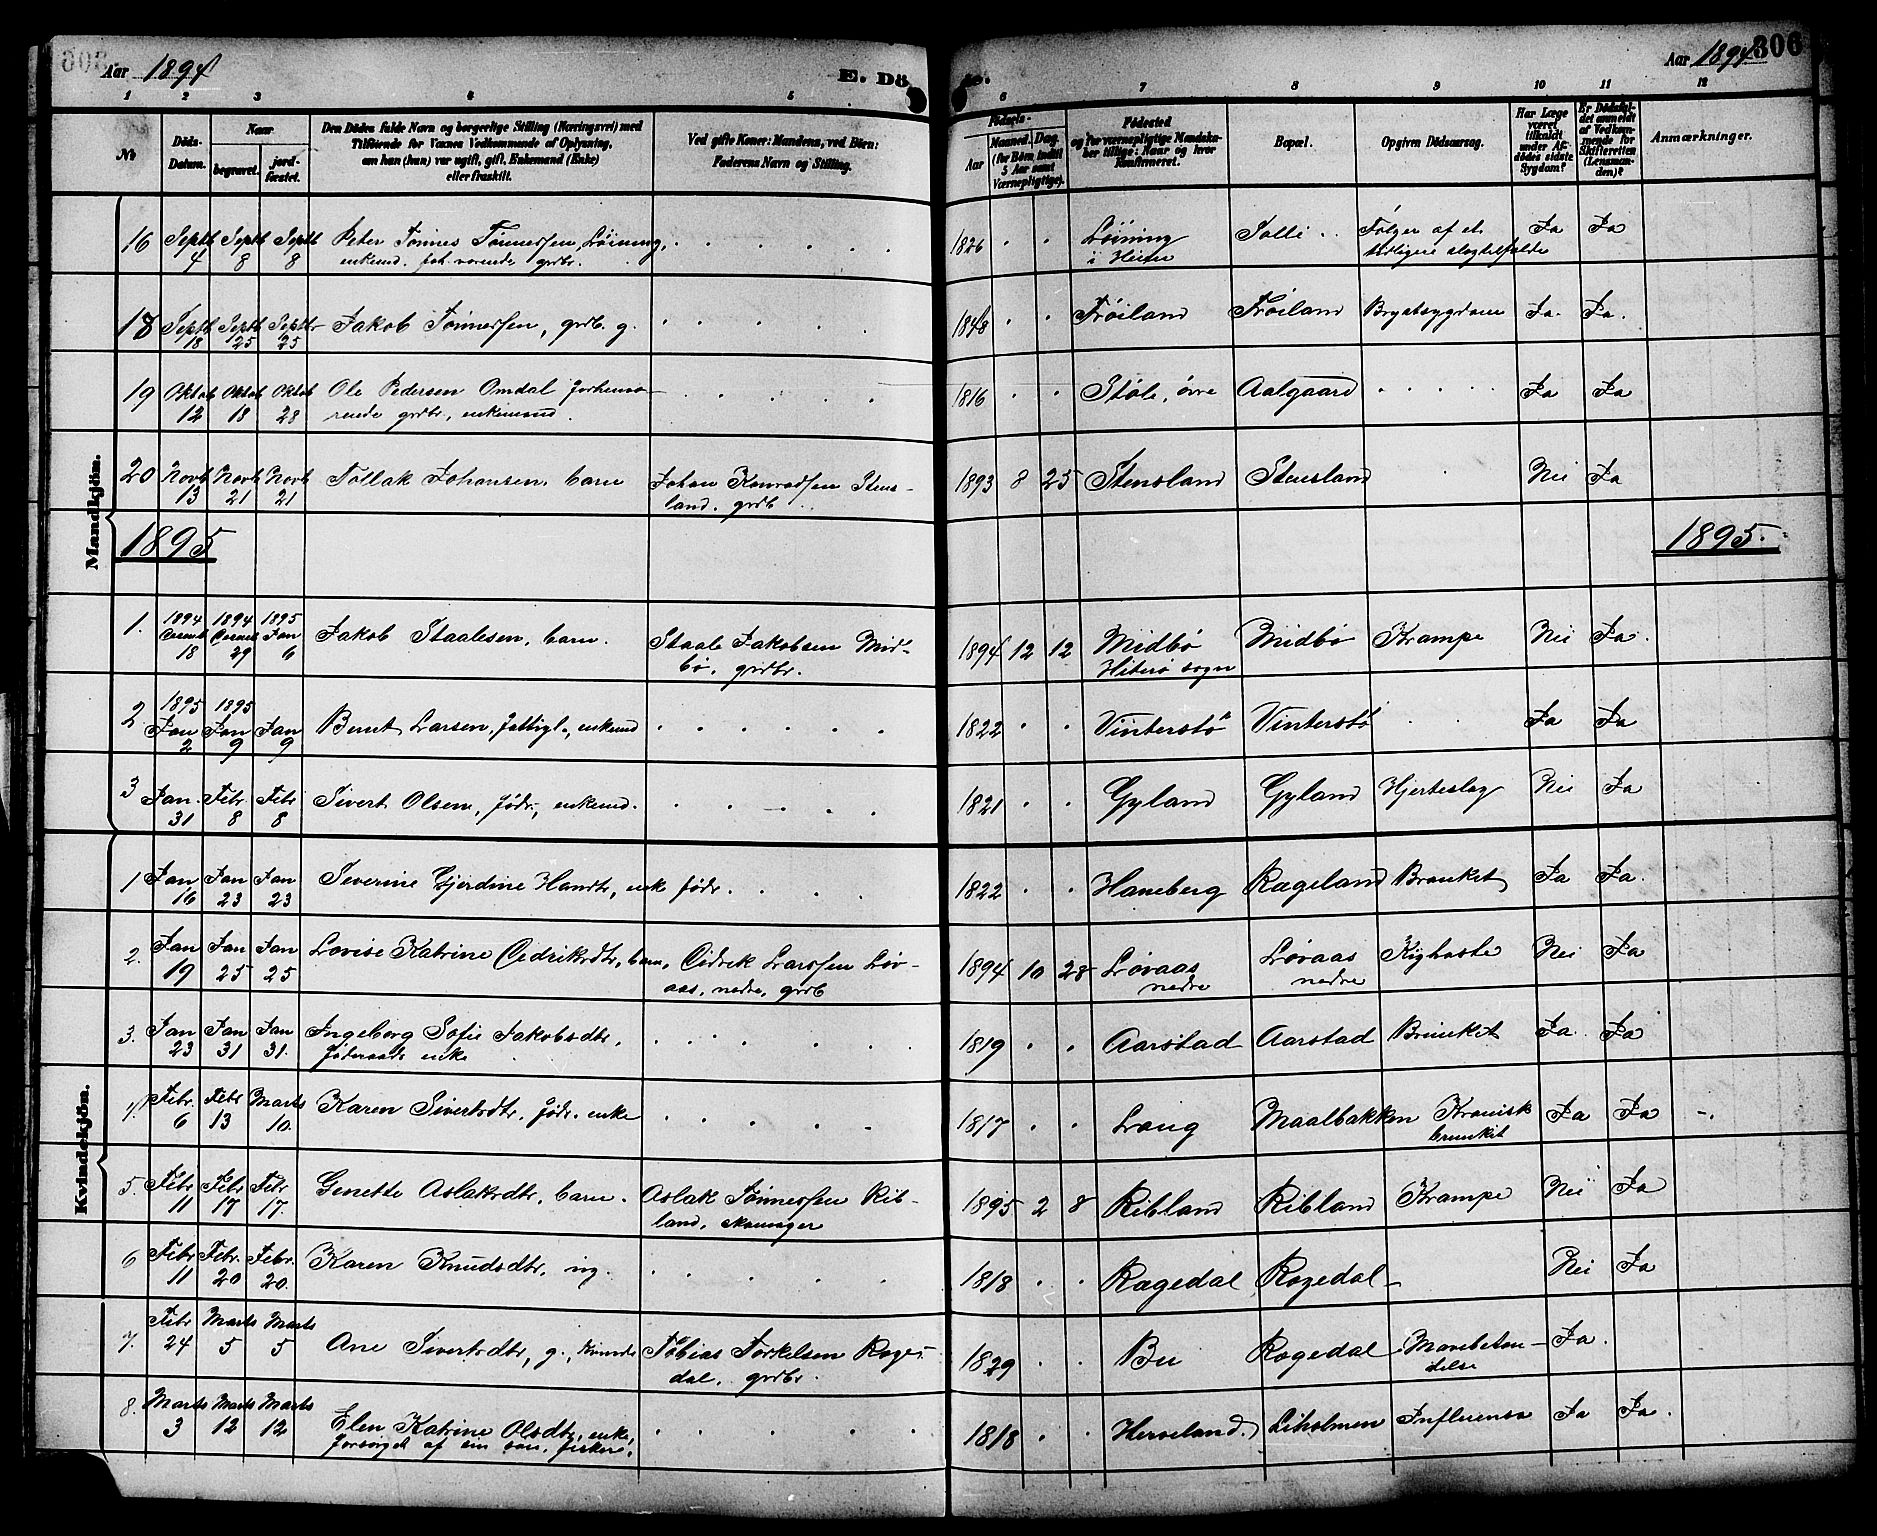 Aar 1894
E. Dö
de.
Aar 1894
306
1 2 3 4 5 6 7 8 9 10 11 12
No
Döds-
Datum.
Naar
begravet.
jord-
fæstet.
Den Dødes fulde Navn og borgerlige Stilling (Næringsvei) med
Tilföiende for Voxnes Vedkommende af Oplysning,
om han (hun) var ugift, gift, Enkemand (Enke)
eller fraskilt.
Ved gifte Koner: Mandens, ved Börn:
Faderens Navn og Stilling.
Födsels-
Aar
Maaned. Dag.
(for Börn indtil
5 Aar samt
Værnepligtige).
Födested
og for værnepligtige Mandskaber tillige: Naar og hvor
Konfirmeret.
Bopæl.
Opgiven Dödsaarsag.
Har Læge
været
tilkaldt
under Afdödes sidste
Sygdom?
Er Dödsfaldet anmeldt
af Vedkommende for
Skifteretten
(Lensmanden)?
Anmærkninger.
Mandkjön.
16 Septb 4 Septb 8 Septb 8 Peter Tønnes Tønnessen, Løining, 1826 Løining Salli Følger af et Ja Ja
enkemd. forh.værende grdbr. i Heien tidligere slagtilfælde
18 Septb 18 Septb 25 Septb 25 Jakob Tønnessen, grdb. g. 1848 Frøiland Frøiland Brystsygdom Ja. Ja.
19 Oktob 12 Oktob 18 Oktob 28 Ole Pedersen Omdal forhenvæ- 1816 Støle, øvre Aalgaard Ja Ja
rende grdbr., enkemand.
20 Novb 13 Novb 21 Novb 21 Tollak Johansen, barn Johan Konradsen Stens- 1893 8 25 Stensland Stensland Nei Ja
land. grdb
1895 1895.
1. 1894 Decemb 18 1894 Decemb 29 1895 Jan 6 Jakob Staalesen, barn. Staale Jakobsen Mid- 1894 12 12 Midbø Midbø Krampe Nei Ja.
bø, grdbr. Hiterø sogn
2 1895 Jan 2 1895 Jan 9 Jan 9 Bernt Larsen, fattigl., enkemd 1822 Vinterstø Vinterstø Ja Ja
3 Jan. 31 Febr 8 Febr 8 Sivert Olsen, födr., enkemd. 1821 Gyland Gyland Hjerteslag Nei Ja
Kvindekjön.
1 Jan 16 Jan 23 Jan 23 Severine Gjerdine Hansdtr, enke födr. 1822 Haneberg Rageland Bronkit Ja Ja.
2. Jan 19 Jan 25 Jan 25 Lovise Katrine Didrikdtr, barn, Didrik Larssen Løv- 1894 10 28 Løvaas Løvaas Kighoste Nei Ja
aas, nedre, grdb nedre nedre
3. Jan 23 Jan 31 Jan 31. Ingeborg Sofie Jakobsdtr, 1819 Aarstad Aarstad Bronkit Ja. Ja
föderaads enke
4. Febr. 6 Febr 13 Marts 10. Karen Sivertsdtr. födr. enke 1817 Lang Maalbakken Kronisk Ja Ja
bronkit
5. Febr 11 Febr 17 Febr 17. Genette Aslaksdtr, barn. Aslak Tønnessen Rib- 1895 2 8 Ribland Ribland Krampe Nei Ja
land, skomager
6 Febr 11 Febr. 20 Febr. 20. Karen Knudsdtr, ug. 1818 Ragedal Ragedal Nei Ja
7. Febr 24 Marts 5 Marts 5 Ane Sivertsdtr, g., Tobias Torkelsen Rage- 1829 Bu Ragedal Mavebetæn- Ja.
dal, grdbr. delse
8. Marts 3 Marts 12 Marts 12 Elen Katrine Olsdtr, enke, 1818 Herveland. Liholmen Influensa Ja Ja.
forsörget af sin sön, fisker.